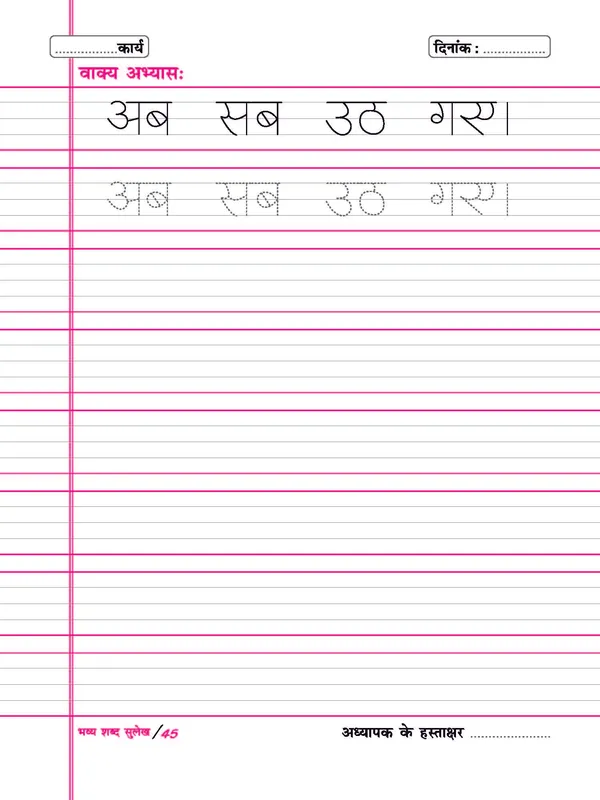 .................कार्य
दिनांक : .................
वाक्य अभ्यास:
अब सब उठ गए।
अब सब उठ गए।
भव्य शब्द सुलेख/45
अध्यापक के हस्ताक्षर ......................